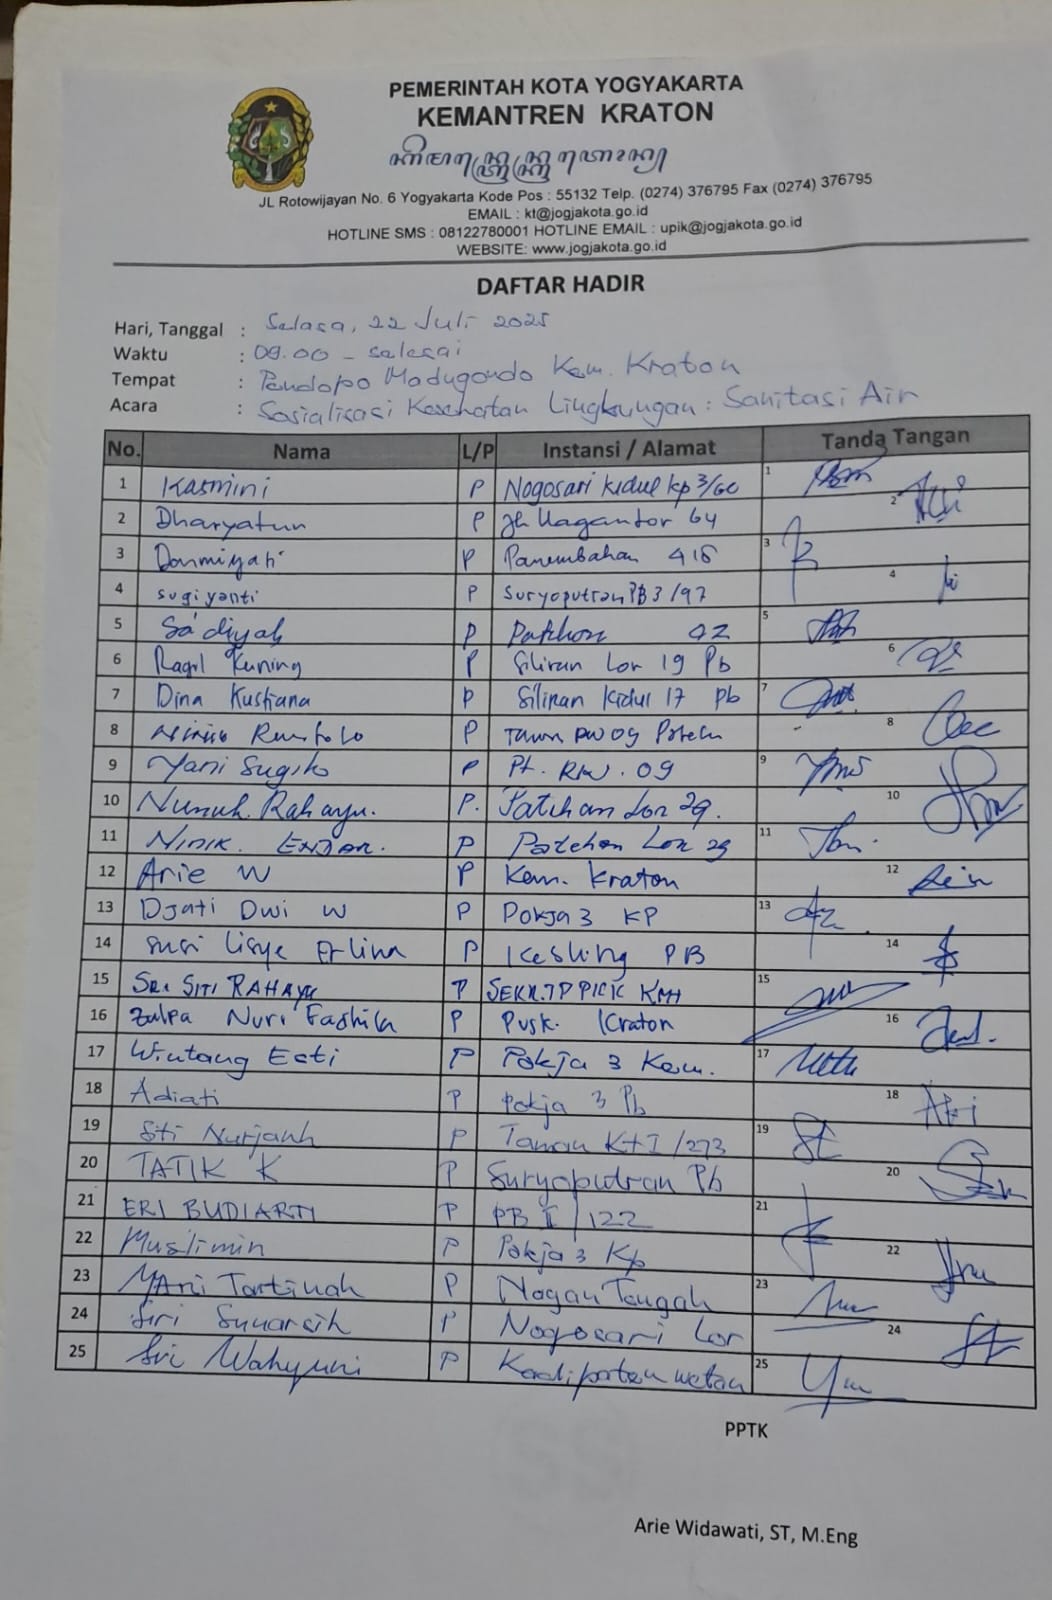 PEMERINTAH KOTA YOGYAKARTA
KEMANTREN KRATON
JL Rotowijayan No. 6 Yogyakarta Kode Pos : 55132 Telp. (0274) 376795 Fax (0274) 376795
EMAIL : kt@jogjakota.go.id
HOTLINE SMS : 08122780001 HOTLINE EMAIL : upik@jogjakota.go.id
WEBSITE: www.jogjakota.go.id
DAFTAR HADIR
Hari, Tanggal : Selasa, 22 Juli 2025
Waktu : 09.00 - selesai
Tempat : Pendopo Madugondo Kem. Kraton
Acara : Sosialisasi Kesehatan Lingkungan : Sanitasi Air
No. Nama L/P Instansi / Alamat Tanda Tangan
1 Kasmini P Nogosari kidul kp 3/60 1
2 Dharyatun P Jl. 64 2
3 Darmiyati P Panembahan 3
4 sugiyanti P Suryoputran PB 3/97 4
5 Sa'diyah P Patehan 5
6 Ragil Kuning P Siliran Lor 19 Pb 6
7 Dina Kustiana P Siliran Kidul 17 Pb 7
8 P 09 8
9 Yani Sugito P Pt. RW. 09 9
10 Nunuk Rahayu. P. Patehan Lor 29. 10
11 NINIK. ENDAR. P Patehan Lor 29 11
12 Arie W P Kem. Kraton 12
13 Djati Dwi W P Pokja 3 KP 13
14 Susi Lisye Erlina P Kesling PB 14
15 SRI SITI RAHAYU P SEKR. TP PKK KMT 15
16 Zulpa Nuri P Pusk. Kraton 16
17 Wintang Esti P Pokja 3 Kem. 17
18 Adiati P Pokja 3 Pb 18
19 Siti Nurjanh P Taman KtI/273 19
20 TATIK K P Suryoputran Pb 20
21 ERI BUDIARTI P PB II/122 21
22 Muslimin P Pokja 3 Kp 22
23 MAri Tartinah P Nagan Tengah 23
24 Siri Sunarsih P Nogosari Lor 24
25 Sri Wahyuni P Kadipaten wetan 25
PPTK
Arie Widawati, ST, M.Eng